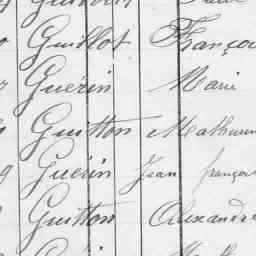 Guillot Franço
Guérin Marie
Guitton Mathurin
Guérin Jean françois
Guitton Alexandre